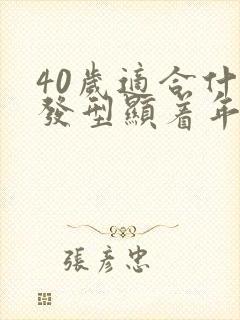 40歲適合什
發型顯着年
張彥忠